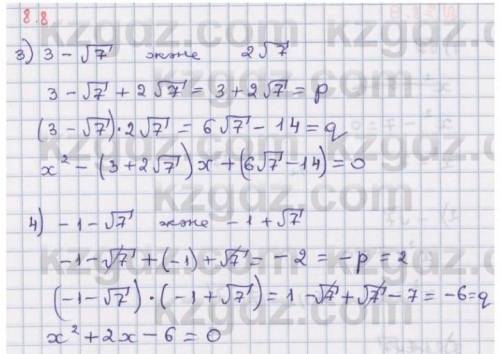 8.8.
3) 3 - √7 және 2√7
3 - √7 + 2√7 = 3 + 2√7 = p
(3 - √7)·2√7 = 6√7 - 14 = q
x² - (3 + 2√7)x + (6√7 - 14) = 0
4) -1 - √7 және -1 + √7
-1 - √7 + (-1) + √7 = -2 = -p = 2
(-1 - √7)·(-1 + √7) = 1 - √7 + √7 - 7 = -6 = q
x² + 2x - 6 = 0